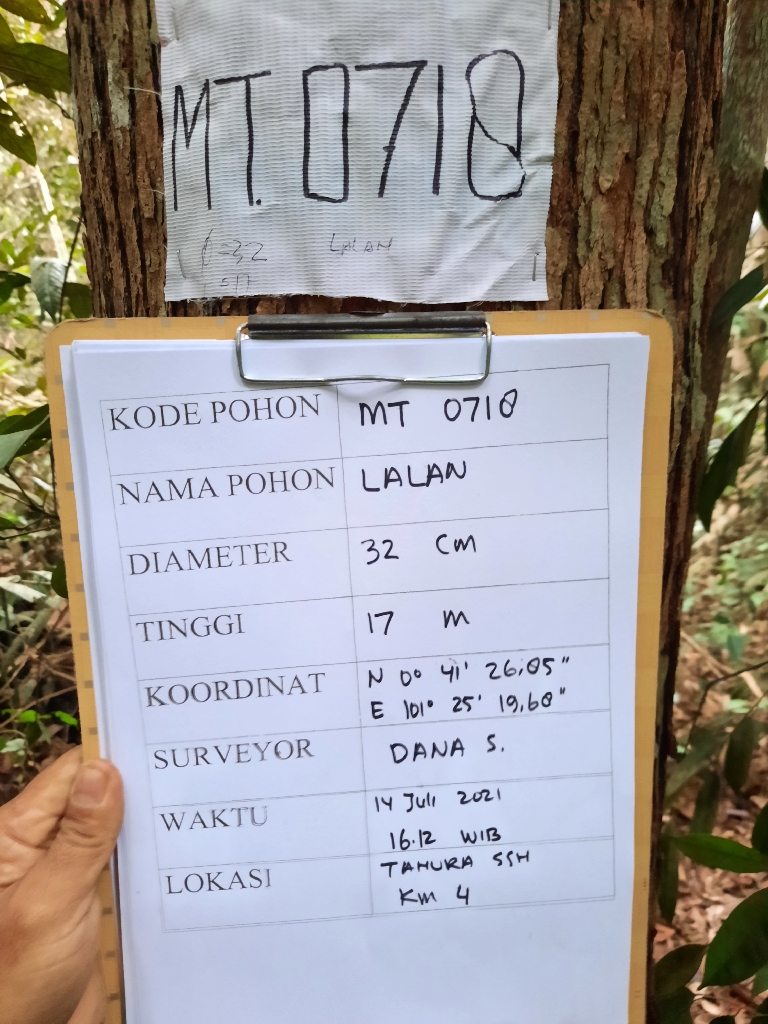 MT. 0718
Ø=32 LALAN
T=17
KODE POHON MT 0718
NAMA POHON LALAN
DIAMETER 32 cm
TINGGI 17 m
KOORDINAT N 0° 41' 26,05"
E 101° 25' 19,60"
SURVEYOR DANA S.
WAKTU 14 Juli 2021
16.12 WIB
LOKASI TAHURA SSH
Km 4